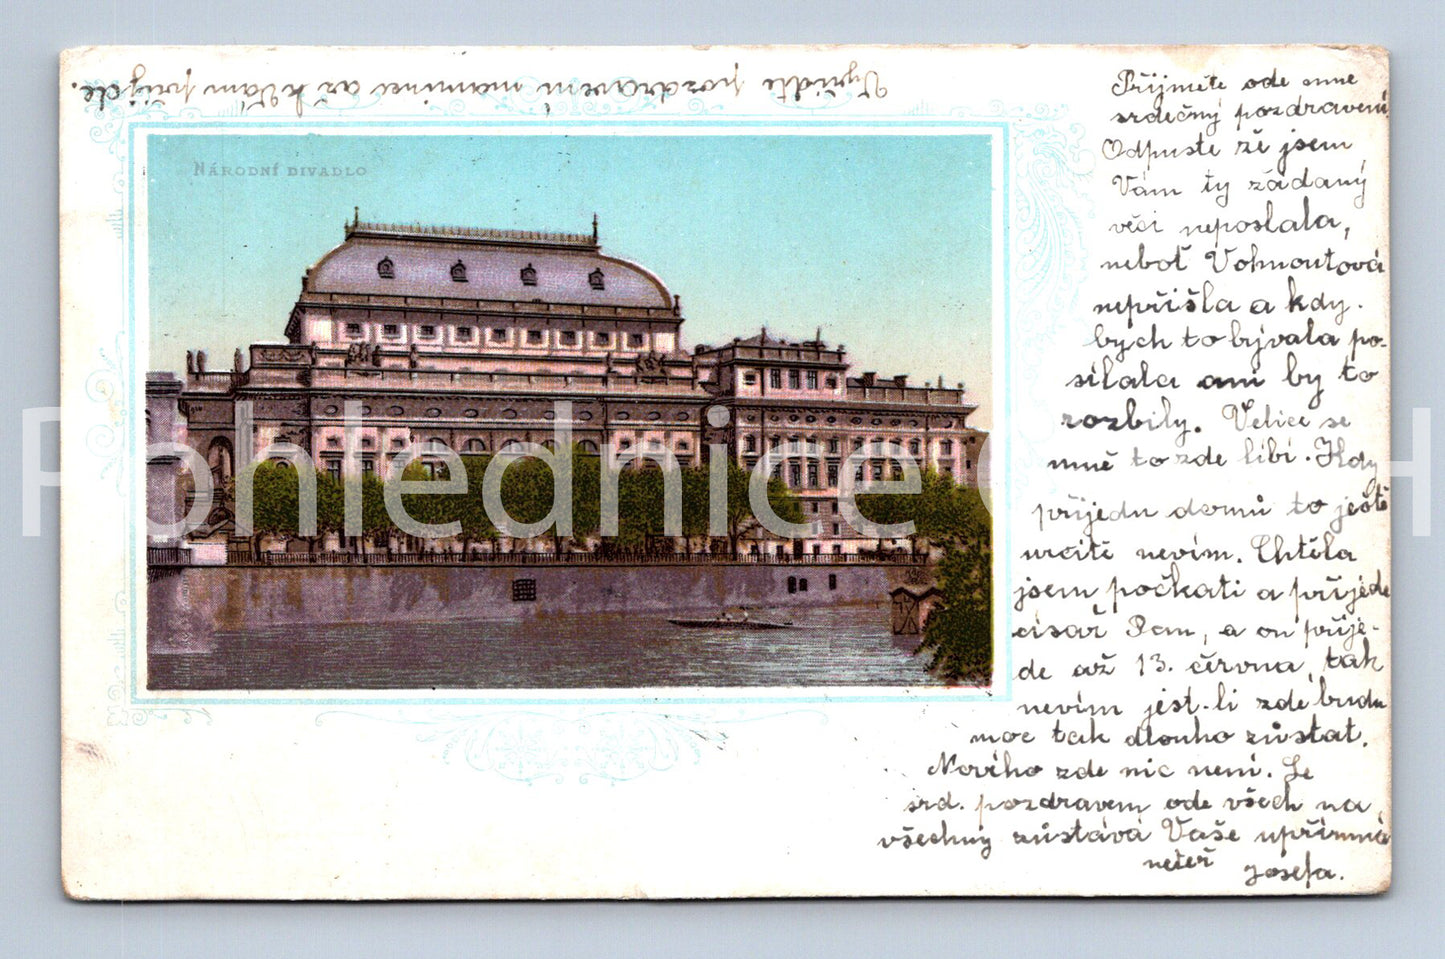 Vyřiďte pozdravení mamince až k Vám přijde.
NÁRODNÍ DIVADLO
Přijmete ode mne
srdečný pozdravení
Odpuste žě jsem
Vám ty žádaný
věci neposlala,
neboť Vohnoutová
nepřišla a kdy-
bych to bývala po-
silala ani by to
rozbily. Velice se
mně to zde líbí. Kdy
přijedu domů to ještě
určitě nevím. Chtěla
jsem počkati a přijede
císař Pan, a on přije-
de až 13. června, tak
nevím jest-li zde budu
moc tak dlouho zůstat.
Noviho zde nic není. Se
srd. pozdravem ode všech na
všechny zůstává Vaše upřímná
neteř Josefa.
Pohlednice